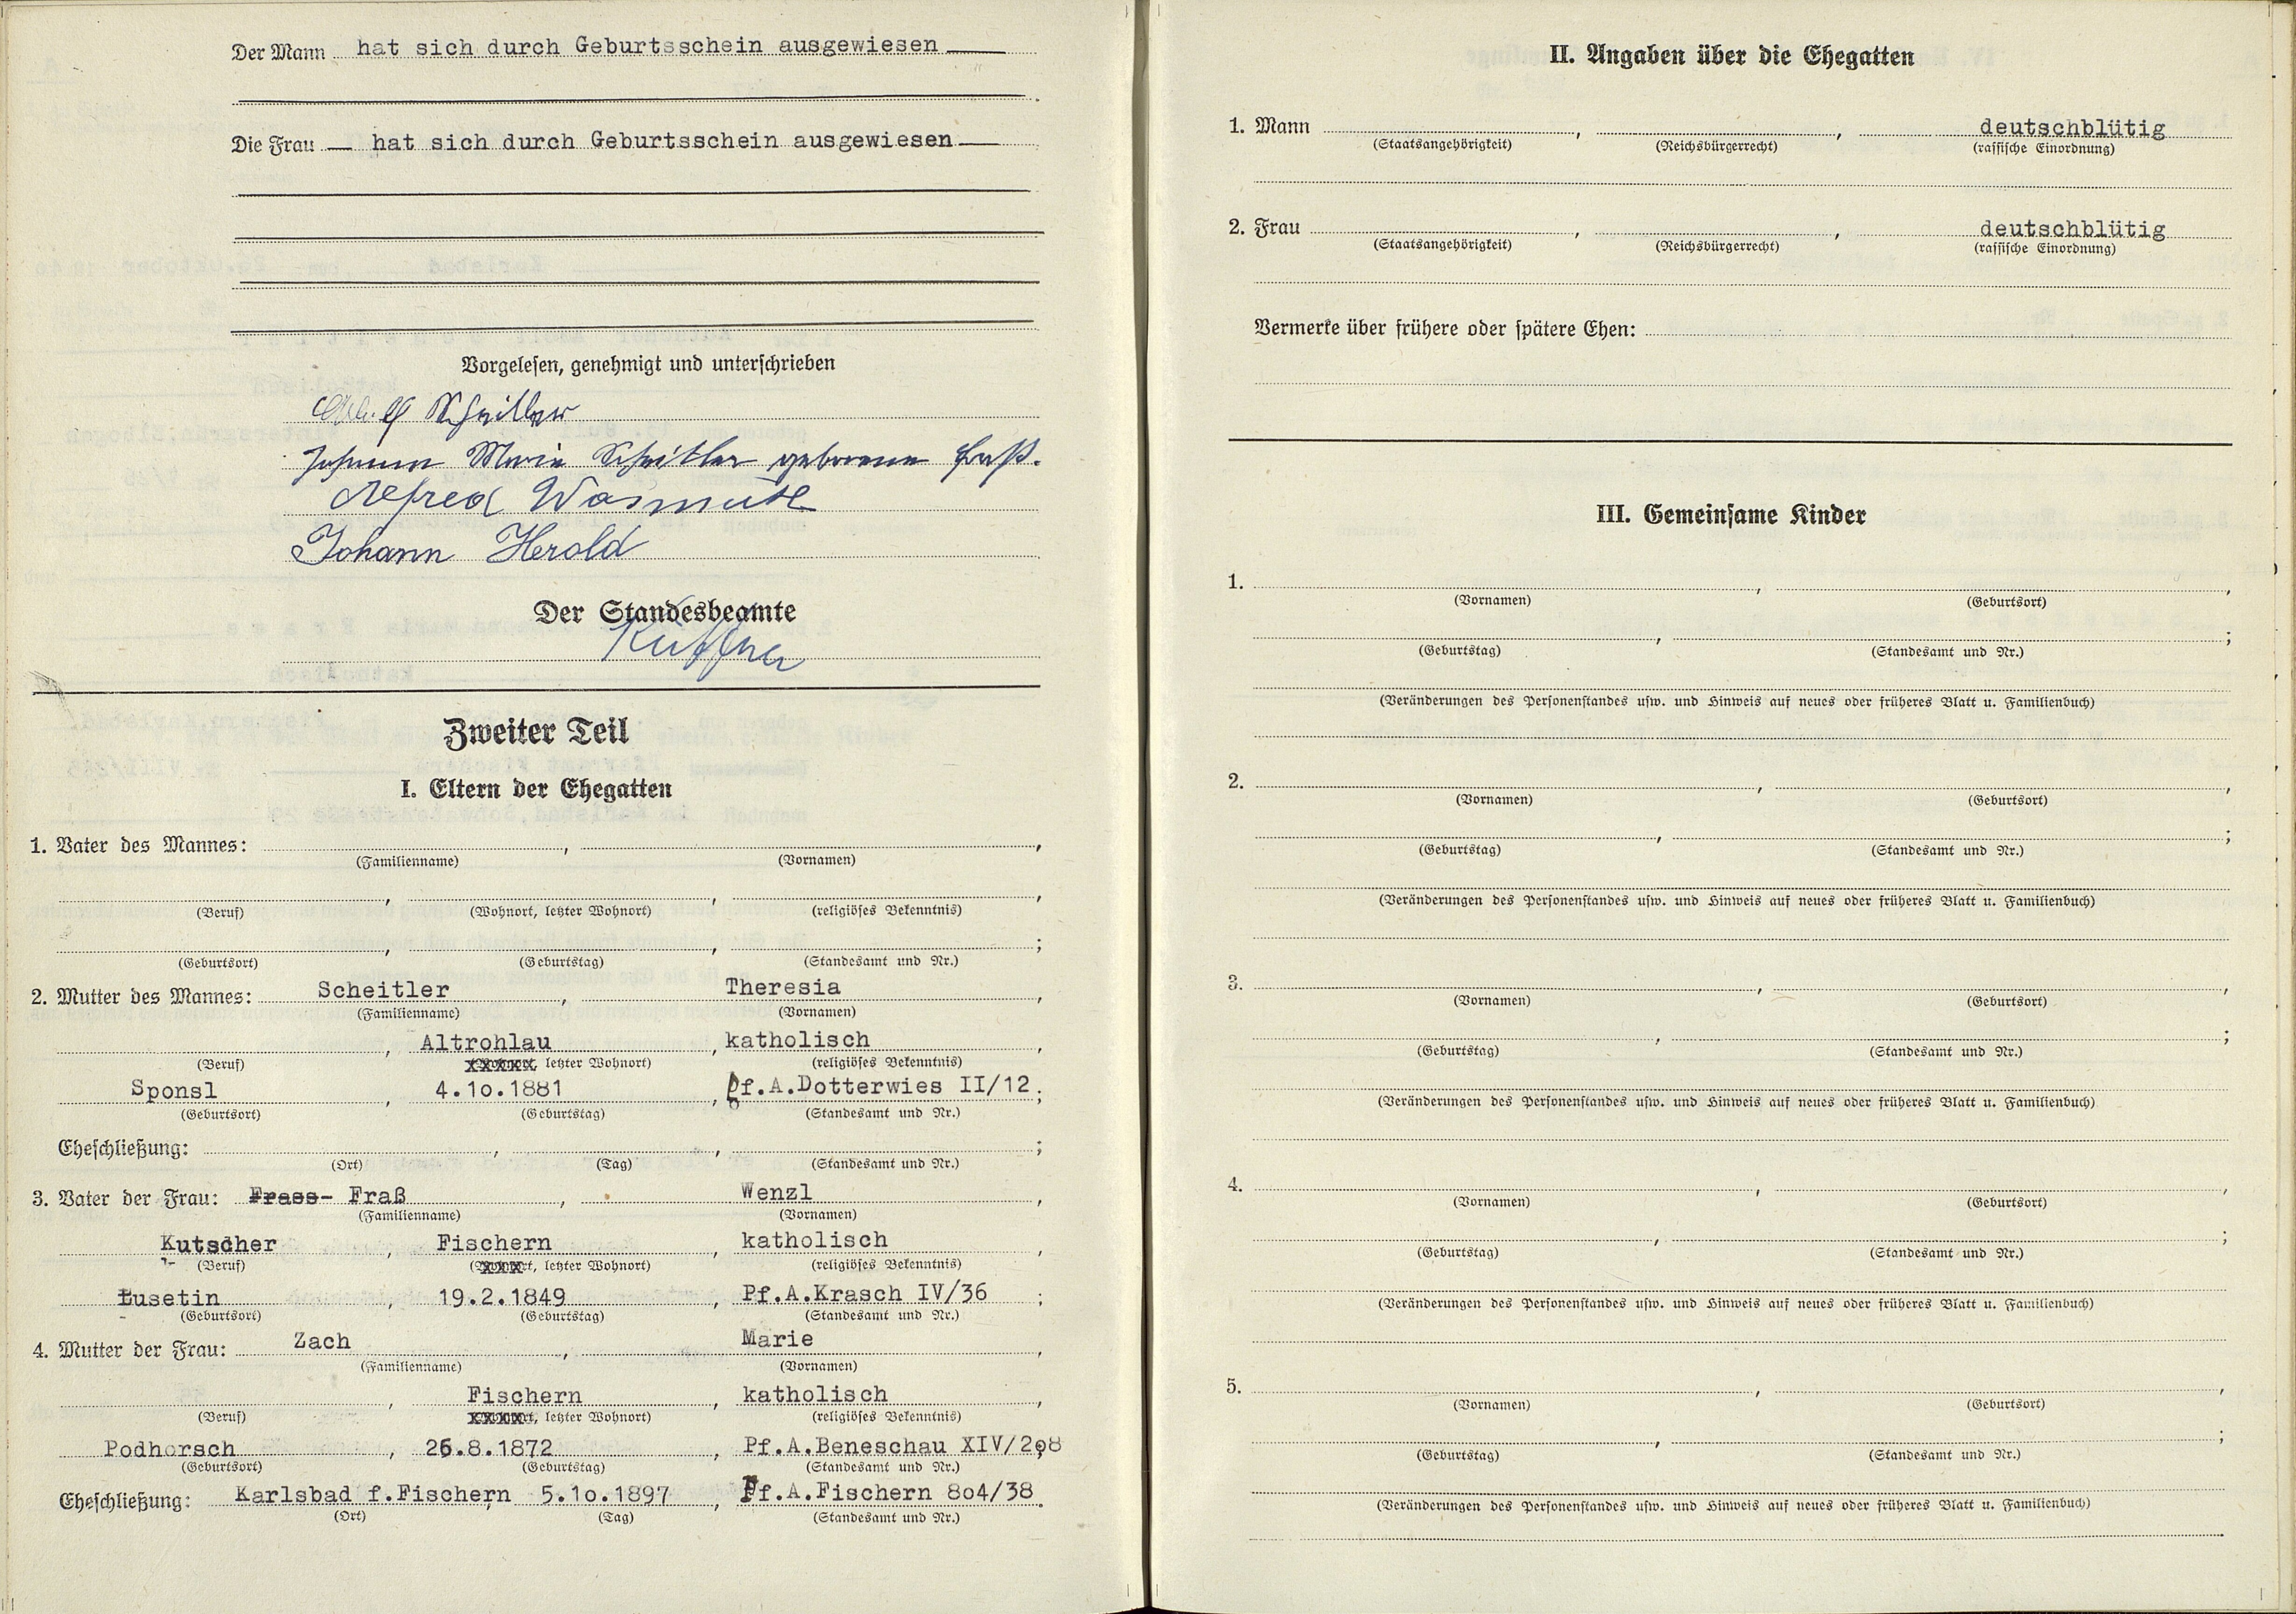 Der Mann hat sich durch Geburtsschein ausgewiesen
Die Frau — hat sich durch Geburtsschein ausgewiesen
Vorgelesen, genehmigt und unterschrieben
Adolf Scheitler
Johanna Maria Scheitler geborene Fraß.
Alfred Wasmuth
Johann Herold
Der Standesbeamte
Küffner
Zweiter Teil
I. Eltern der Ehegatten
1. Vater des Mannes: , ,
(Familienname) (Vornamen)
, , ,
(Beruf) (Wohnort, letzter Wohnort) (religiöses Bekenntnis)
, , ;
(Geburtsort) (Geburtstag) (Standesamt und Nr.)
2. Mutter des Mannes: Scheitler , Theresia ,
(Familienname) (Vornamen)
, Altrohlau , katholisch ,
(Beruf) letzter Wohnort) (religiöses Bekenntnis)
Sponsl , 4.10.1881 , Pf.A.Dotterwies II/12 ;
(Geburtsort) (Geburtstag) (Standesamt und Nr.)
Eheschließung: , , ;
(Ort) (Tag) (Standesamt und Nr.)
3. Vater der Frau: Frass- Fraß , Wenzl ,
(Familienname) (Vornamen)
Kutscher , Fischern , katholisch ,
(Beruf) (Wohnort, letzter Wohnort) (religiöses Bekenntnis)
Lusetin , 19.2.1849 , Pf.A.Krasch IV/36 ;
(Geburtsort) (Geburtstag) (Standesamt und Nr.)
4. Mutter der Frau: Zach , Marie ,
(Familienname) (Vornamen)
, Fischern , katholisch ,
(Beruf) (Wohnort, letzter Wohnort) (religiöses Bekenntnis)
Podhorsch , 26.8.1872 , Pf.A.Beneschau XIV/208
(Geburtsort) (Geburtstag) (Standesamt und Nr.)
Eheschließung: Karlsbad f.Fischern , 5.10.1897 , Pf.A.Fischern 804/38 .
(Ort) (Tag) (Standesamt und Nr.)
II. Angaben über die Ehegatten
1. Mann , , deutschblütig
(Staatsangehörigkeit) (Reichsbürgerrecht) (rassische Einordnung)
2. Frau , , deutschblütig
(Staatsangehörigkeit) (Reichsbürgerrecht) (rassische Einordnung)
Vermerke über frühere oder spätere Ehen:
III. Gemeinsame Kinder
1. , ,
(Vornamen) (Geburtsort)
, ;
(Geburtstag) (Standesamt und Nr.)
(Veränderungen des Personenstandes usw. und Hinweis auf neues oder früheres Blatt u. Familienbuch)
2. , ,
(Vornamen) (Geburtsort)
, ;
(Geburtstag) (Standesamt und Nr.)
(Veränderungen des Personenstandes usw. und Hinweis auf neues oder früheres Blatt u. Familienbuch)
3. , ,
(Vornamen) (Geburtsort)
, ;
(Geburtstag) (Standesamt und Nr.)
(Veränderungen des Personenstandes usw. und Hinweis auf neues oder früheres Blatt u. Familienbuch)
4. , ,
(Vornamen) (Geburtsort)
, ;
(Geburtstag) (Standesamt und Nr.)
(Veränderungen des Personenstandes usw. und Hinweis auf neues oder früheres Blatt u. Familienbuch)
5. , ,
(Vornamen) (Geburtsort)
, ;
(Geburtstag) (Standesamt und Nr.)
(Veränderungen des Personenstandes usw. und Hinweis auf neues oder früheres Blatt u. Familienbuch)